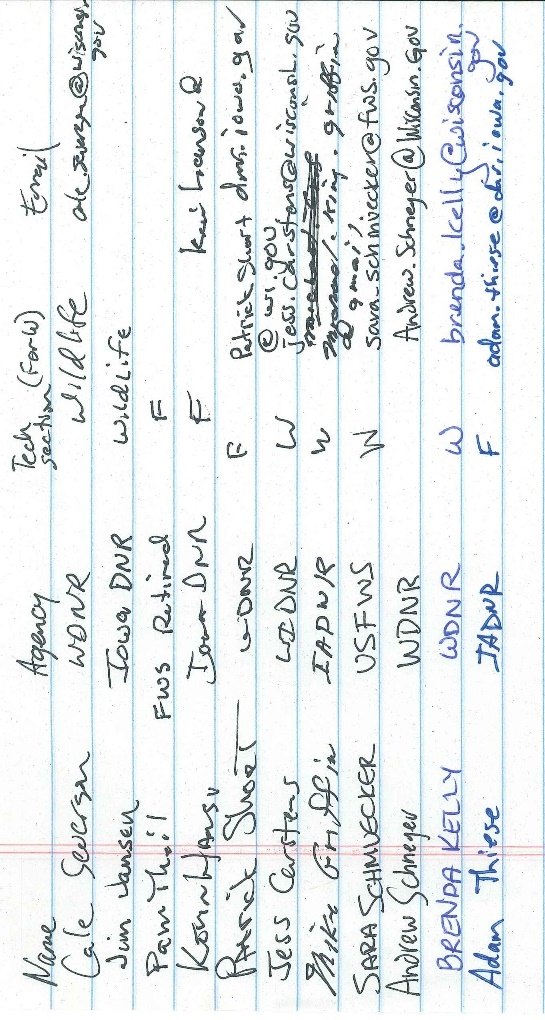 Name Agency Tech section (F or W) Email
Cale Severson WDNR Wildlife cale.severson@wisconsin.gov
Jim Jansen Iowa DNR Wildlife
Pam Thiel FWS Retired F
Iowa DNR F
Patrick Short WDNR F Patrick Short
@ wi.gov
Jess Carstens WIDNR W jess.carstens@wisconsin.gov
Mike Griffin IADNR W king.griffin
@ gmail
SARA SCHMUECKER USFWS W sara_schmuecker@fws.gov
Andrew Schneyer WDNR Andrew.Schneyer@Wisconsin.gov
BRENDA KELLY WDNR W brenda.kelly@wisconsin.gov
Adam Thiese IADNR F adam.thiese@dnr.iowa.gov